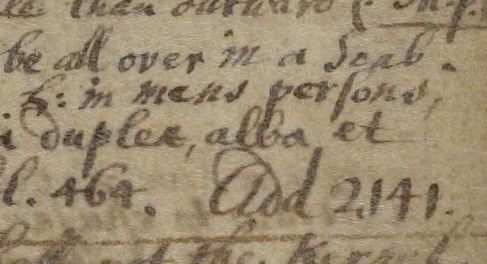 than outward
be all over in a Scab.
in mens persons,
duplex, alba et
l. 464. Add 2.141.
the Kernel